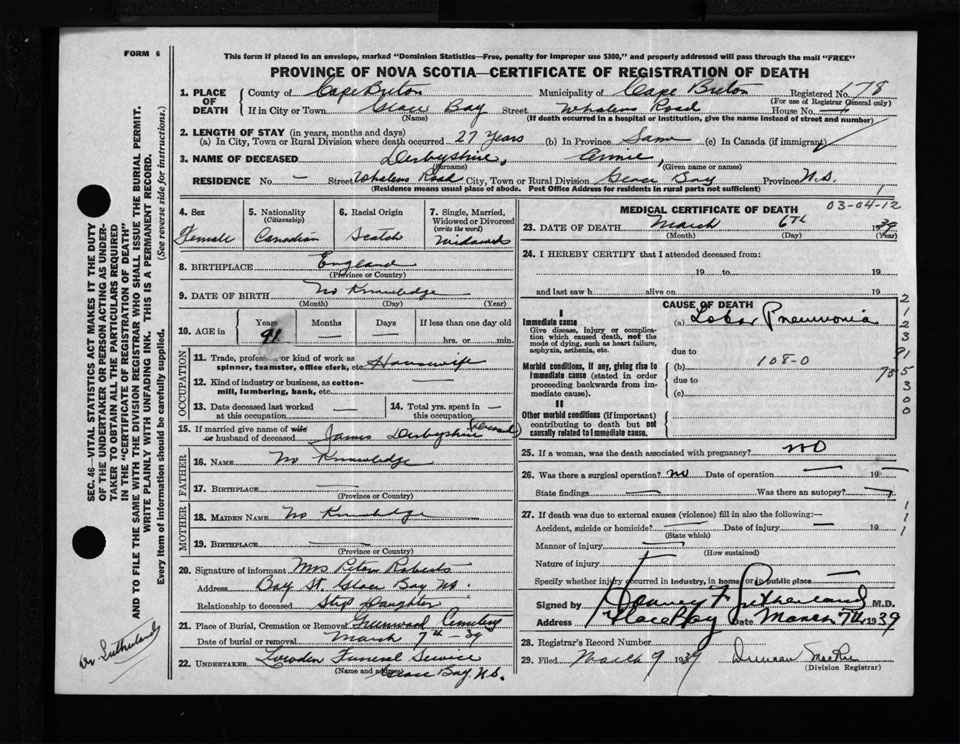 FORM 6
This form if placed in an envelope, marked "Dominion Statistics—Free, penalty for improper use $300," and properly addressed will pass through the mail "FREE"
PROVINCE OF NOVA SCOTIA—CERTIFICATE OF REGISTRATION OF DEATH
SEC. 46—VITAL STATISTICS ACT MAKES IT THE DUTY
OF THE UNDERTAKER OR PERSON ACTING AS UNDER-
TAKER TO OBTAIN ALL THE PARTICULARS REQUIRED
IN THE "CERTIFICATE OF REGISTRATION OF DEATH"
AND TO FILE THE SAME WITH THE DIVISION REGISTRAR WHO SHALL ISSUE THE BURIAL PERMIT.
WRITE PLAINLY WITH UNFADING INK. THIS IS A PERMANENT RECORD.
Every item of information should be carefully supplied. (See reverse side for instructions.)
Dr Sutherland
1. PLACE OF DEATH County of Cape Breton Municipality of Cape Breton Registered No. 178
(For use of Registrar General only)
If in City or Town Glace Bay Street Whalens Road House No.
(Name) (If death occurred in a hospital or institution, give the name instead of street and number)
2. LENGTH OF STAY (in years, months and days)
(a) In City, Town or Rural Division where death occurred 27 Years (b) In Province Same (c) In Canada (if immigrant)
3. NAME OF DECEASED Derbyshire, Annie,
(Surname) (Given name or names)
RESIDENCE No. — Street Whalens Road City, Town or Rural Division Glace Bay Province N.S.
(Residence means usual place of abode. Post Office Address for residents in rural parts not sufficient) 1
4. Sex Female
5. Nationality (Citizenship) Canadian
6. Racial Origin Scotch
7. Single, Married, Widowed or Divorced (write the word) Widowed
8. BIRTHPLACE England
(Province or Country)
9. DATE OF BIRTH No Knowledge
(Month) (Day) (Year)
10. AGE in Years 91 Months — Days — If less than one day old
hrs. or min.
OCCUPATION
11. Trade, profession or kind of work as
spinner, teamster, office clerk, etc. Housewife
12. Kind of industry or business, as cotton-
mill, lumbering, bank, etc. —
13. Date deceased last worked at this occupation —
14. Total yrs. spent in this occupation —
15. If married give name of wife or husband of deceased James Derbyshire (Deceased)
FATHER
16. NAME No Knowledge
17. BIRTHPLACE —
(Province or Country)
MOTHER
18. MAIDEN NAME No Knowledge
19. BIRTHPLACE —
(Province or Country)
20. Signature of informant Mrs Peter Roberts
Address Bay St. Glace Bay N.S.
Relationship to deceased Step Daughter
21. Place of Burial, Cremation or Removal Greenwood Cemetery
Date of burial or removal March 7th - 39
22. UNDERTAKER Lowden Funeral Service
(Name and address) Glace Bay, N.S.
MEDICAL CERTIFICATE OF DEATH 03-04-12
23. DATE OF DEATH March 6th 1939
(Month) (Day) (Year)
24. I HEREBY CERTIFY that I attended deceased from:
19 to 19
and last saw h alive on 19
CAUSE OF DEATH
I
Immediate cause (a) Lobar Pneumonia
Give disease, injury or complica-
tion which caused death, not the
mode of dying, such as heart failure,
asphyxia, asthenia, etc.
due to
Morbid conditions, if any, giving rise to (b) 108-0
immediate cause (stated in order
proceeding backwards from im-
mediate cause). due to
(c)
II
Other morbid conditions (if important)
contributing to death but not
causally related to immediate cause.
25. If a woman, was the death associated with pregnancy? NO
26. Was there a surgical operation? NO Date of operation — 19
State findings — Was there an autopsy? —
27. If death was due to external causes (violence) fill in also the following:—
Accident, suicide or homicide? — Date of injury — 19
(State which)
Manner of injury —
(How sustained)
Nature of injury
Specify whether injury occurred in industry, in home or in public place —
Signed by Harvey F. Sutherland M.D.
Address Glace Bay Date March 7th 1939
28. Registrar's Record Number
29. Filed March 9 1939 Duncan MacRae
(Division Registrar)